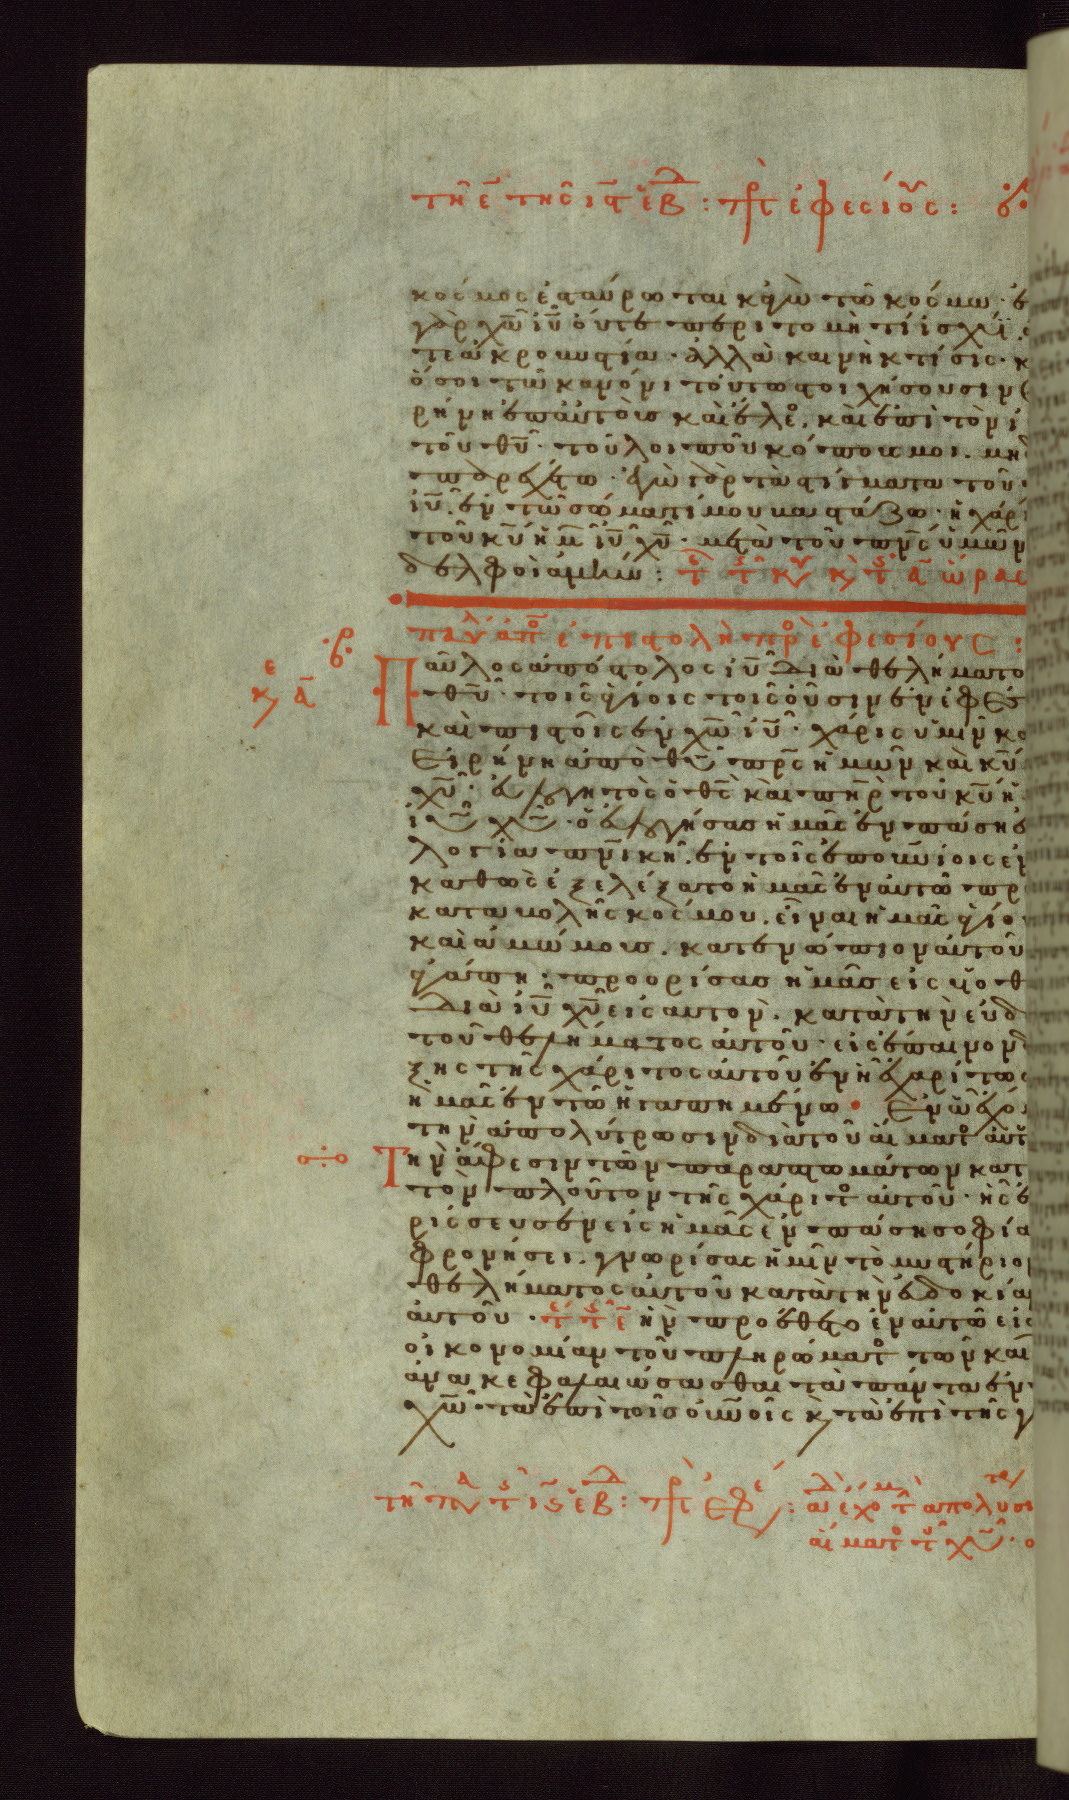 τῆ ε̄ τῆς ις̄ ἑβδ : πρ ἐφεσίους :
κόσμος ἐσταύρωται κἀγὼ τῶ κόσμω · ἐ
γὰρ χ̅ω̅ ι̅υ̅ ὄυτε περιτομή τι ἰσχύει
τε ἀκροβυστία · ἀλλὰ καινὴ κτίσις · κ
ὅσοι τῶ κανόνι τούτω στοιχήσουσιν
ρήνη ἐπ αὐτοὺς καὶ ἔλεο, καὶ ἐπὶ τὸν ἰ
τοῦ θ̅υ̅ · τοῦ λοιποῦ κόπους μοι. μηδ
παρεχέτω · ἐγὼ γὰρ τὰ στίγματα τοῦ
ι̅υ̅, ἐν τῶ σώματί μου βαστάζω · ἡ χάρι
τοῦ κ̅υ̅ ἡμ ι̅υ̅ χ̅υ̅ · μετὰ τοῦ π̅ν̅ς ὑμῶν
δελφοὶ ἀμήν :
παυλ ἀπο ἐπιστολὴ πρ ἐφεσίους :
κ ᾱ Παῦλος ἀπόστολος ι̅υ̅ διὰ θελήματο
θ̅υ̅ · τοῖς ἁγίοις τοῖς οὖσιν ἐν ἐφέσ
καὶ πιστοῖς ἐν χ̅ω̅ ι̅υ̅ · χάρις ὑμῖν κα
εἰρήνη ἀπὸ θ̅υ̅ π̅ρ̅ς ἡμῶν καὶ κ̅υ̅
χ̅υ̅ · εὐλογητὸς ὁ θ̅ς̅ καὶ π̅η̅ρ̅ τοῦ κ̅υ̅ ἡ
ι̅υ̅ χ̅υ̅ · ὁ εὐλογήσας ἡμᾶς ἐν πάση ε
λογία π̅ν̅ικῆ, ἐν τοῖς ἐπουνίοις ἐν
καθὼς ἐξελέξατο ἡμᾶς ἐν αὐτῶ πρ
καταβολῆς κόσμου, εἶναι ἡμᾶς ἁγίο
καὶ ἀμώμους, κατενώπιον αὐτοῦ
ἀγάπη : προορίσας ἡμᾶς εἰς υἱοθ
διὰ ι̅υ̅ χ̅υ̅ εἰς αὐτον, κατὰ τὴν εὐδ
τοῦ θελήματος αὐτοῦ · εἰς ἔπαινον δ
ξης τῆς χάριτος αὐτοῦ ἐν ἧ ἐχαρίτωσ
ἡμᾶς ἐν τῶ ἠγαπημένω · ἐν ὧ ἔχο
τὴν ἀπολύτρωσιν διὰ τοῦ αἵματο αὐτ
Τὴν ἄφεσιν τῶν παραπτωμάτων κατ
τὸν πλοῦτον τῆς χάριτο αὐτοῦ · ἧς ἐ
ρίσσευσεν εἰς ἡμᾶς ἐν πάση σοφία
φρονήσει, γνωρίσας ἡμῖν τὸ μυστήριον
θελήματος αὐτοῦ κατὰ τὴν εὐδοκίαν
αὐτοῦ · ἣν προέθετο ἐν αὐτῶ εἰς
οἰκονομίαν τοῦ πληρώματο τῶν και
ἀνακεφαλαιώσασθαι τὰ πάντα ἐν
χ̅ω̅ · τὰ ἐπὶ τοῖς οὐνοῖς κ τὰ ἐπὶ τῆς γ
ἑβδ : πρ ἐφε : ἀδ ἔχο τ ἀπολυ
αἵματο τ χ̅υ̅ ·